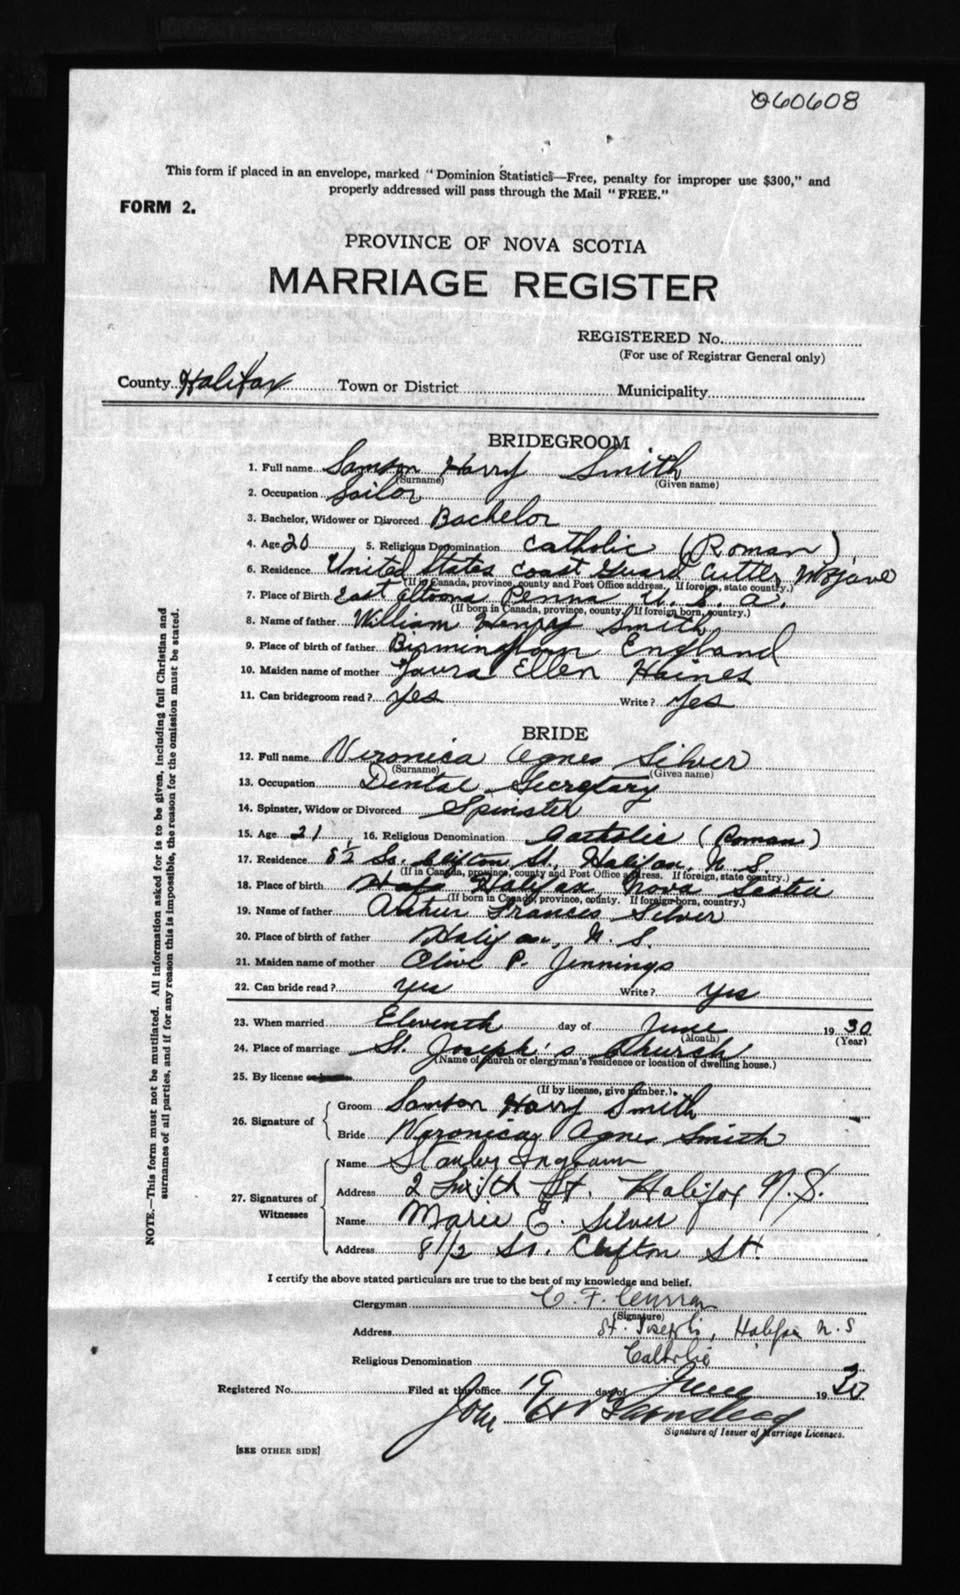 060608
This form if placed in an envelope, marked "Dominion Statistics—Free, penalty for improper use $300," and
properly addressed will pass through the Mail "FREE."
FORM 2.
PROVINCE OF NOVA SCOTIA
MARRIAGE REGISTER
REGISTERED No.
(For use of Registrar General only)
County Halifax Town or District Municipality
BRIDEGROOM
1. Full name Samson Harry Smith
(Surname) (Given name)
2. Occupation Sailor
3. Bachelor, Widower or Divorced Bachelor
4. Age 20 5. Religious Denomination Catholic (Roman)
6. Residence United States Coast Guard Cutter Mojave
(If in Canada, province, county and Post Office address. If foreign, state country.)
7. Place of Birth East Altoona Penna U. S. A.
(If born in Canada, province, county. If foreign born, country.)
8. Name of father William Henry Smith
9. Place of birth of father Birmingham England
10. Maiden name of mother Laura Ellen Haines
11. Can bridegroom read? Yes Write? Yes
BRIDE
12. Full name Veronica Agnes Silver
(Surname) (Given name)
13. Occupation Dental Secretary
14. Spinster, Widow or Divorced Spinster
15. Age 21 16. Religious Denomination Catholic (Roman)
17. Residence 8½ So. Clifton St., Halifax, N. S.
(If in Canada, province, county and Post Office address. If foreign, state country.)
18. Place of birth Halifax Nova Scotia
(If born in Canada, province, county. If foreign born, country.)
19. Name of father Arthur Francis Silver
20. Place of birth of father Halifax, N. S.
21. Maiden name of mother Olive P. Jennings
22. Can bride read? yes Write? yes
23. When married Eleventh day of June 1930
(Month) (Year)
24. Place of marriage St. Joseph's Church
(Name of church or clergyman's residence or location of dwelling house.)
25. By license
(If by license, give number.)
26. Signature of Groom Samson Harry Smith
Bride Veronica Agnes Smith
27. Signatures of Witnesses Name Stanley Ingham
Address 2 St. Halifax N.S.
Name Marie C. Silver
Address 8 1/2 So. Clifton St.
I certify the above stated particulars are true to the best of my knowledge and belief.
Clergyman C. F. Curran
(Signature)
Address St. Joseph's, Halifax N.S
Religious Denomination Catholic
Registered No. Filed at this office 19 day of June 1930
John
Signature of Issuer of Marriage Licenses.
[SEE OTHER SIDE]
NOTE.—This form must not be mutilated. All information asked for is to be given, including full Christian and
surnames of all parties, and if for any reason this is impossible, the reason for the omission must be stated.